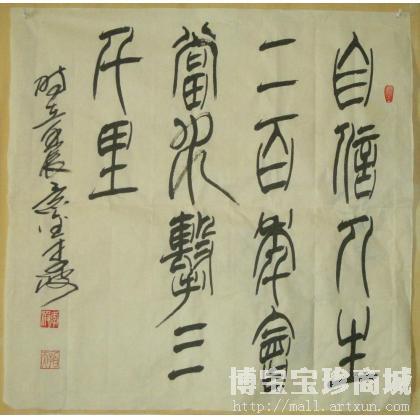 自信人生
二百年會
當水擊三
千里
博宝宝珍商城
http://mall.artxun.com